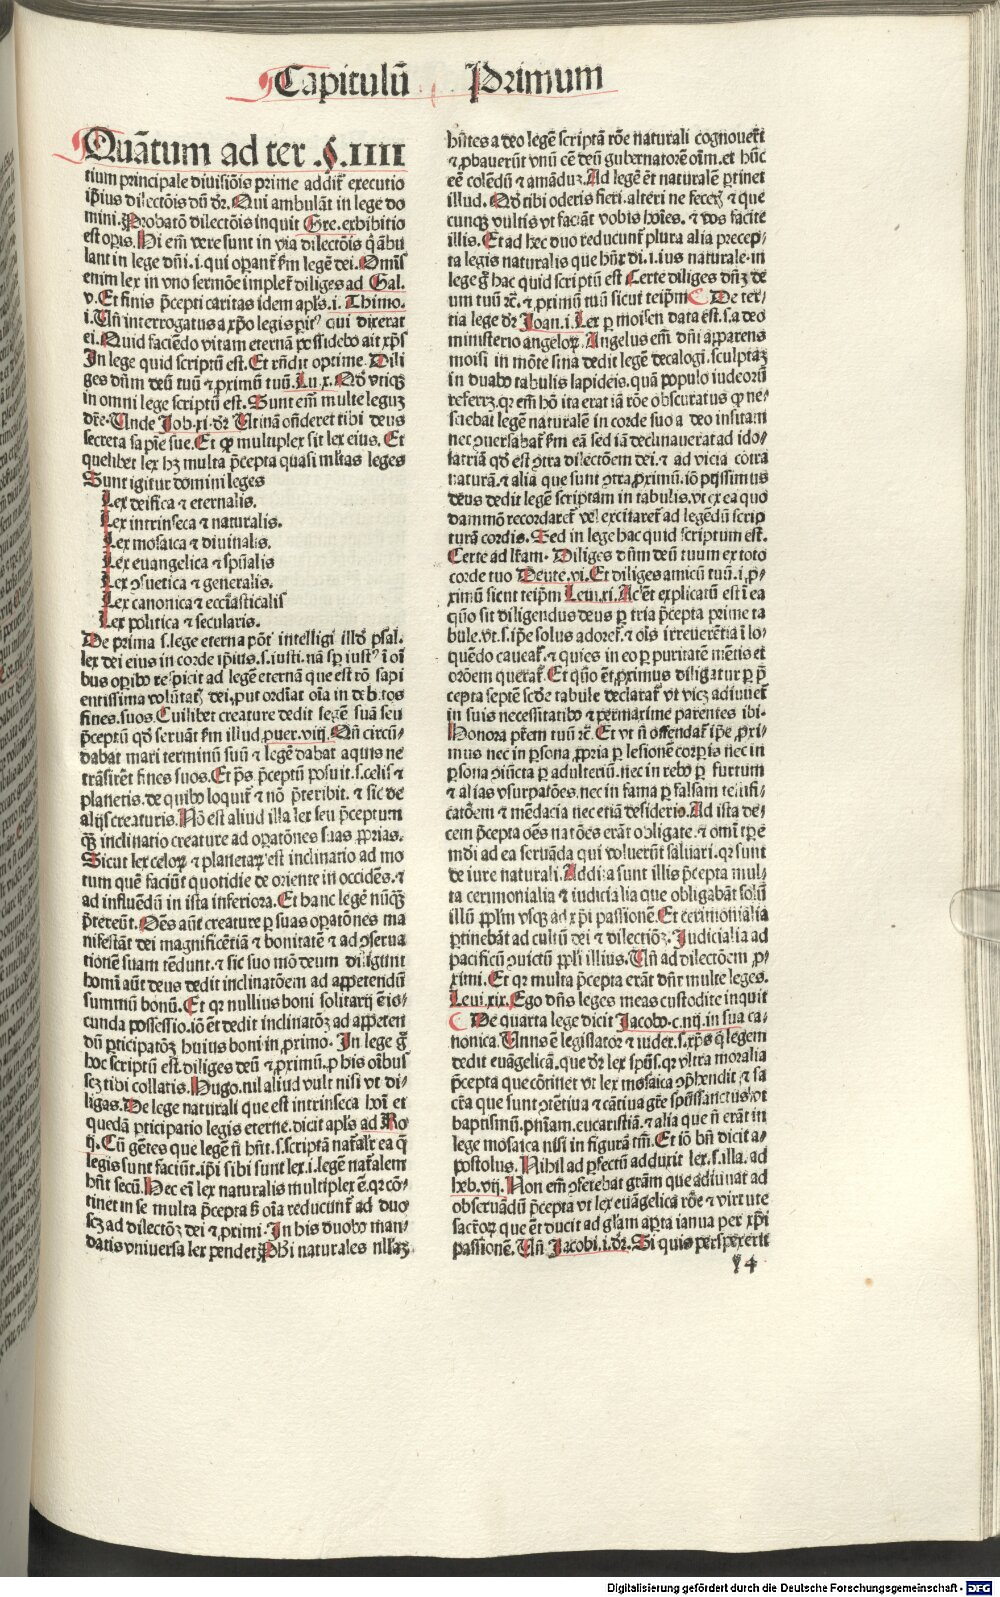 Capitulū Primum
Quātum ad ter .§.IIII
tium principale diuisiōis prime addit̄ executio
ip̄ius dilectōis dū dr̄. Qui ambulāt in lege do
mini. Probatō dilectōis inquit Gre. exhibitio
est oꝑis. Hi em̄ vere sunt in via dilectōis q̄ ābu
lant in lege dn̄i .i. qui oꝑant̄ ẜm legē dei. Omīs
enim lex in vno sermōe implet̄ diliges ad Gal.
v. Et finis p̄cepti caritas idem apl̓s .i. Thimo.
i. Vn̄ interrogatus a xp̄o legis ꝑitꝰ qui dixerat
ei. Quid faciēdo vitam eternā possidebo ait xp̄s
In lege quid scriptū est. Et r̄ndit optime. Dili
ges dn̄m deū tuū ⁊ ꝓximū tuū. Lu. x. Qd̓ vtiqꝫ
in omni lege scriptū est. Sunt em̄ multe leguꝫ
dr̄e. Vnde Job. xi. dr̄ Vtinā on̄deret tibi deus
secreta sapīe sue. Et ꝙ multiplex sit lex eius. Et
quelibet lex hꝫ multa p̄cepta quasi ml̓tas leges
Sunt igitur domini leges
Lex deifica ⁊ eternalis.
Lex intrinseca ⁊ naturalis.
Lex mosaica ⁊ diuinalis.
Lex euangelica ⁊ sp̄ualis
Lex ꝯsuetica ⁊ generalis.
Lex canonica ⁊ eccl̓iasticalis
Lex politica ⁊ secularis.
De prima .s. lege eterna pōt intelligi illd̓ psal.
lex dei eius in corde ip̄ius .s. iusti. nā sp̄ iustꝰ ī oī
bus oꝑibꝰ respicit ad legē eternā que est rō sapi
entissima volūtatꝭ dei, put ordīat oīa in debitos
fines suos. Cuilibet creature dedit legē suā seu
p̄ceptū qd̓ seruāt ẜm illud ꝓuer. viij. Qn̄ circū-
dabat mari terminū suū ⁊ legē dabat aquis ne
trāsirēt fines suos. Et p̄s p̄ceptū posuit .s. celis ⁊
planetis. de quibꝰ loquit̄ ⁊ nō p̄teribit. ⁊ sic de
alijs creaturis. Nō est aliud illa lex seu p̄ceptum
qꝫ̄ inclinatio creature ad oꝑatōnes suas ꝓprias.
Sicut lex celoꝝ ⁊ planetaꝝ est inclinatio ad mo
tum quē faciūt quotidie de oriente in occidēs. ⁊
ad influēdū in ista inferiora. Et hanc legē nūqꝫ̄
p̄tereūt. Oēs aūt creature ꝑ suas oꝑatōnes ma
nifestāt dei magnificētiā ⁊ bonitatē ⁊ ad ꝯserua
tionē suam tēdunt. ⁊ sic suo mō deum diligunt
homī aūt deus dedit inclinatōem ad appetendū
summū bonū. Et qꝛ nullius boni solitarij ē is-
cunda possessio. iō ēt dedit inclinatōꝫ ad appeten
dū ꝑticipatōꝫ huius boni in ꝓximo. In lege gͦ
hoc scriptū est. diliges deū ⁊ ꝓximū. ꝓ his oībus
scꝫ tibi collatis. Hugo. nil aliud vult nisi vt di-
ligas. De lege naturali que est intrinseca hoī et
quedā ꝑticipatio legis eterne. dicit apl̓s ad Ro
ij. Cū gētes que legē nō hn̄t .s. scriptā nat̄alr̄ ea q̄
legis sunt faciūt. ip̄i sibi sunt lex .i. legē nat̄alem
hn̄t secū. Hec eī lex naturalis multiplex ē. qꝛ cō-
tinet in se multa p̄cepta ẜ oīa reducunt̄ ad duo
scꝫ ad dilectōꝫ dei ⁊ ꝓximi. In his duobꝰ man-
datis vniuersa lex pendet. Phi naturales
hn̄tes a deo legē scriptā rōe naturali cognouert̄
⁊ ꝓbauerūt vnū eē deū gubernatorē oīm. et hūc
eē colēdū ⁊ amāduꝫ. Ad legē ēt naturalē ꝑtinet
illud. Qd̓ tibi oderis fieri. alteri ne fecerꝭ ⁊ que
cunqꝫ vultis vt faciāt vobis hoīes. ⁊ vos facite
illis. Et ad hec duo reducunt̄ plura alia precep-
ta legis naturalis que hn̄r di. i. ius naturale. in
lege gͦ hac quid scriptū est Certe diliges dn̄ꝫ de
um tuū ⁊c̄. ⁊ ꝓximū tuū sicut teip̄m De ter-
tia lege dr̄ Joan. i. Lex ꝑ moisen data est .s. a deo
ministerio angeloꝝ. Angelus em̄ dn̄i apparens
moisi in mōte sina dedit legē decalogi. sculptaꝫ
in duabꝰ tabulis lapideis. quā populo iudeorū
referrꝫ. qꝛ em̄ hō ita erat iā rōe obscuratus ꝙ ne-
sciebat legē naturalē in corde suo a deo insitam
nec ꝯuersabat̄ ẜm eā sed iā declinauerat ad ido-
latriā qd̓ est ꝯtra dilectōem dei. ⁊ ad vicia cōtra
naturā. ⁊ alia que sunt ꝯtra ꝓximū. iō piissimus
deus dedit legē scriptam in tabulis. vt ex ea quo
dammō recordaret̄ vel excitaret̄ ad legēdū scrip
turā cordis. Sed in lege hac quid scriptum est.
Certe ad lr̄am. Diliges dn̄m deū tuum ex toto
corde tuo Deute. vi. Et diliges amicū tuū .i. ꝓ-
ximū sicut teip̄m Leui. xi. Ac ēt explicatū est ī ea
quō sit diligendus deus ꝑ tria p̄cepta prime ta
bule. vt .s. ip̄e solus adoret̄. ⁊ oīs irreuerētia ī lo-
quēdo caueat̄. ⁊ quies in eo ꝑ puritatē mētis et
orōem querat̄. Et quō ēt ꝓximus diligatur ꝑ p̄
cepta septē scd̓e tabule declarat̄ vt vicꝫ adiuuet̄
in suis necessitatibꝰ ⁊ permaxime parentes ibi.
Honora pr̄em tuū ⁊c̄. Et vt nō offendat̄ ip̄e ꝓxi-
mus nec in ꝑsona ꝓpria ꝑ lesionē corꝑis nec in
ꝑsona ꝯiūcta ꝑ adulteriū. nec in rebꝰ ꝑ furtum
⁊ alias vsurpatōes. nec in fama ꝑ falsam testifi-
catōem ⁊ mēdacia nec etiā desiderio. Ad ista de-
cem p̄cepta oēs natōes erāt obligate. ⁊ omī tꝑe
mūdi ad ea seruāda qui voluerūt saluari. qꝛ sunt
de iure naturali. Addita sunt illis p̄cepta mul-
ta cerimonialia ⁊ iudicialia que obligabāt solū
illū ppl̓m vsqꝫ ad xp̄i passionē. Et cerimonialia
ꝑtinebāt ad cultū dei ⁊ dilectiōꝫ. Judicialia ad
pacificū ꝯuictū ppl̓i illius. Vn̄ ad dilectōem ꝓ-
ximi. Et qꝛ multa p̄cepta erāt dn̄r multe leges.
Leui. xix. Ego dn̄s leges meas custodite inquit
De quarta lege dicit Jacobꝰ. c. iiij. in sua ca-
nonica. Vnus ē legislator ⁊ iudex .s. xp̄s q̄ legem
dedit euāgelicā. que dr̄ lex sp̄us. qꝛ vltra moralia
p̄cepta que cōtinet vt lex mosaica ꝯp̄hendit ⁊ sa
cr̄a que sunt ꝯtētiua ⁊ cātiua gr̄e sp̄ussanctus vt
baptismū. pn̄iam. eucaristiā. ⁊ alia que nō erāt in
lege mosaica nisi in figurā tm̄. Et iō bn̄ dicit a-
postolus. Nihil ad ꝑfectū adduxit lex .s. illa. ad
heb. vij. Non em̄ ꝯferebat gr̄am que adiuuat ad
obseruādū p̄cepta vt lex euāgelica rōe ⁊ virtute
sacr̄oꝝ que ēt ducit ad gl̓iam aꝑta ianua per xp̄i
passionē. Vn̄ Jacobi. i. dr̄. Si quis perspexerit
y 4
Digitalisierung gefördert durch die Deutsche Forschungsgemeinschaft - DFG